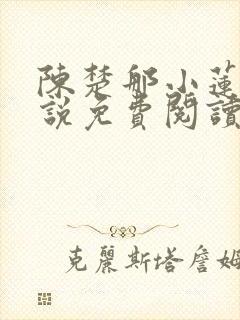 陳楚郍小蓮
說免費閱讀
克麗斯塔詹姆